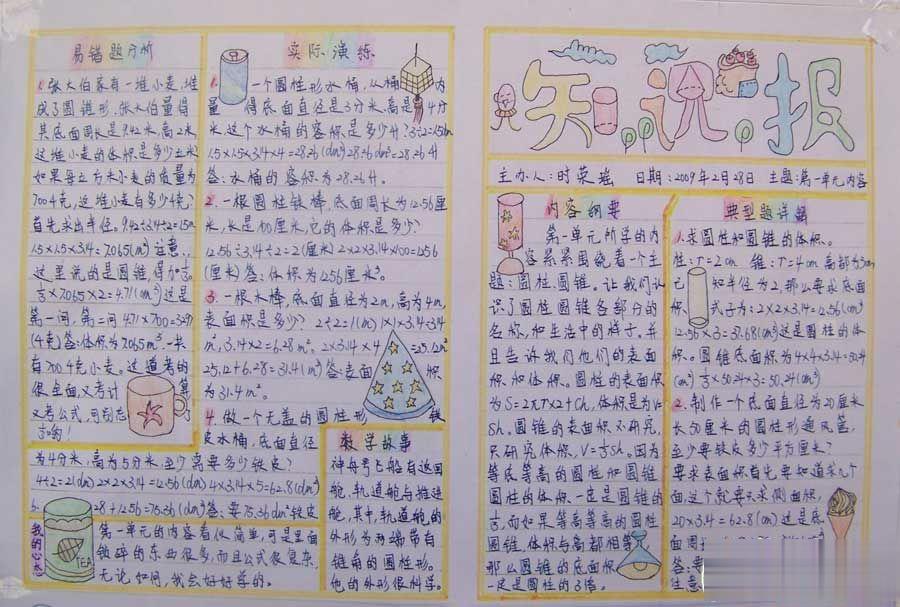 易错题分析
1.张大伯家有一堆小麦,堆
成了圆锥形,张大伯量得
其底面周长是9.42米,高2米,
这堆小麦的体积是多少立米?
如果每立方米小麦的质量为
700千克,这堆小麦有多少千克?
首先求出半径。9.42÷3.14÷2=1.5m
1.5×1.5×3.14=7.065(m²)注意:
这里说的是圆锥,得加⅓。
⅓×7.065×2=4.71(m³)这是
第一问,第二问4.71×700=3297
(千克)答:体积为7.065m³,一共
有700千克小麦。这道考的
很全面,又考计算
又考公式,可别忘
⅓哟!
实际演练
1.一个圆柱形水桶,从桶内
量得底面直径是3分米,高是4分
米,这个水桶的容积是多少升?3÷2=1.5dm
1.5×1.5×3.14×4=28.26(dm³)28.26dm³=28.26升
答:水桶的容积为28.26升。
2.一根圆柱铁棒,底面周长为12.56厘
米,长是100厘米,它的体积是多少?
12.56÷3.14÷2=2(厘米)2×2×3.14×100=1256
(厘米)答:体积为1256厘米³。
3.一根木棒,底面直径为2m,高为4m,
表面积是多少?2÷2=1(m)1×1×3.14=3.14
m²,3.14×2=6.28m²。2×3.14×4=25.12m²
25.12+6.28=31.4(m²)答:表面积
为31.4m²。
4.做一个无盖的圆柱形铁
皮水桶,底面直径
为4分米,高为5分米,至少需要多少铁皮?
4÷2=2(dm)2×2×3.14=12.56(dm²)4×3.14×5=62.8(dm²)
答:要75.36dm²铁皮
数学故事
神舟号飞船有返回
舱,轨道舱与推进
舱,其中,轨道舱的
外形为两端带有
锥角的圆柱形。
他的外形很科学。
我的心态
TEA
第一单元的内容看似简单,可是里面
锁碎的东西很多,而且公式很复杂,
无论如何,我会好好学的。
知识报
主办人:时英瑶 日期:2009年2月28日 主题:第一单元内容
内容纲要
第一单元所学的内
容紧紧围绕着一个主
题:圆柱、圆锥。让我们认
识了圆柱圆锥各部分的
名称,和生活中的样子。并
且告诉我们他们的表面
积和体积。圆柱的表面积
为S=2πr×2+Ch,体积是为V=
Sh。圆锥的表面积不研究,
只研究体积,V=⅓Sh。因为
等底等高的圆柱和圆锥
圆柱的体积一定是圆锥的
⅓,而如果等高等高的圆柱
圆锥,体积与高都相等,
那么圆锥的底面积
一定是圆柱的3倍。
典型题详解
1.求圆柱和圆锥的体积。
柱:r=2cm 锥:r=4cm 高都为3cm
已知半径为2,那么要求底面
积式子为:2×2×3.14=12.56(m²)
12.56×3=37.68(cm³)这是圆柱的体
积。圆锥底面积为4×4×3.14=50.24
(cm²)⅓×50.24×3=50.24(cm³)
2.制作一个底面直径为20厘米
长50厘米的圆柱形通风管,
至少要铁皮多少平方厘米?
要求表面积首先要知道求几个
面,这个就要只求侧面积,
20×3.14=62.8(cm)这是底
面周
答:要
注意